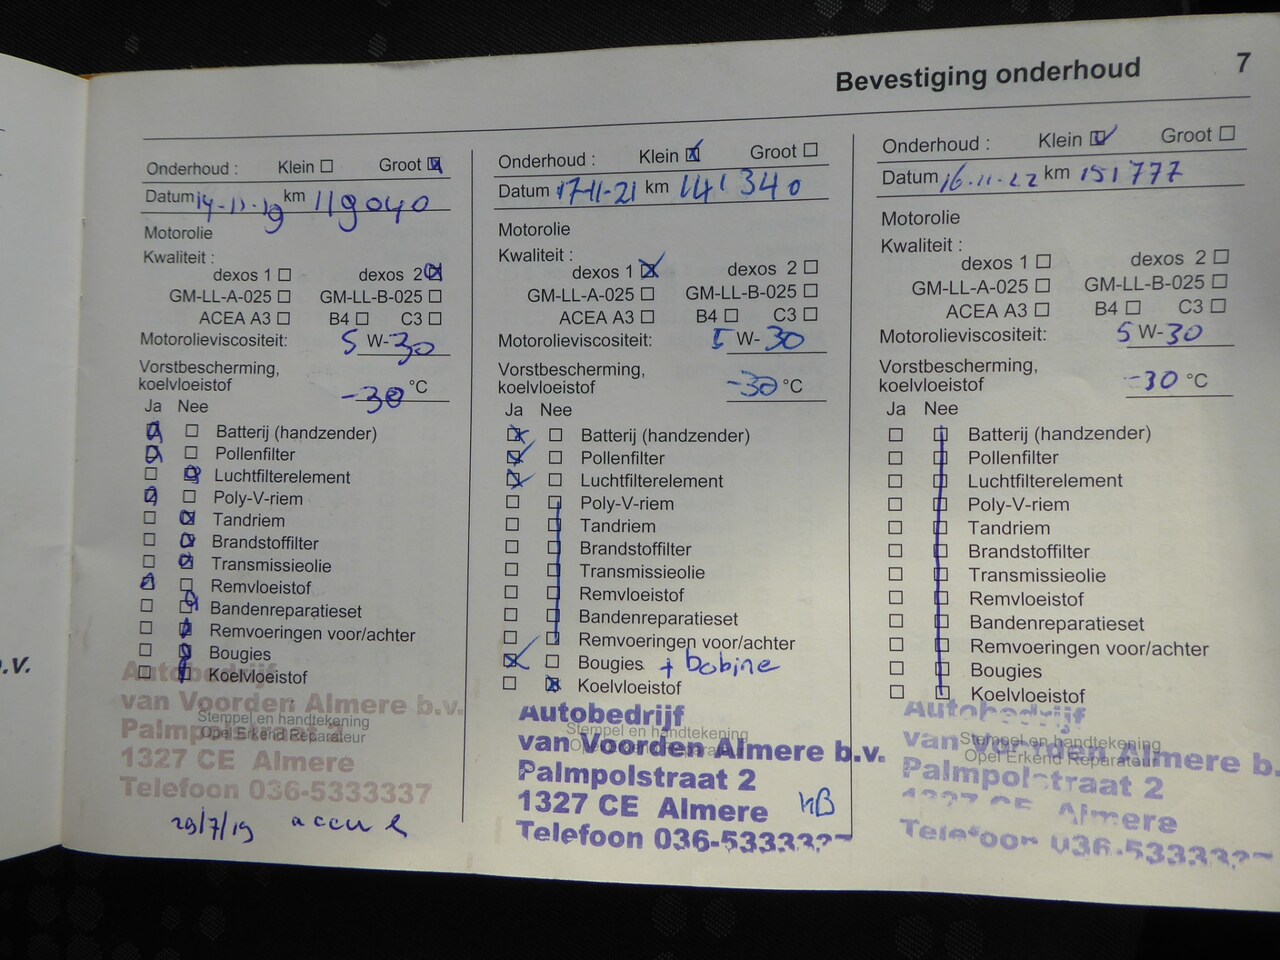 Bevestiging onderhoud 7
Onderhoud : Klein Groot
Datum km 119040
Motorolie
Kwaliteit :
dexos 1 dexos 2
GM-LL-A-025 GM-LL-B-025
ACEA A3 B4 C3
Motorolieviscositeit: 5 W-30
Vorstbescherming,
koelvloeistof -30 °C
Ja Nee
Batterij (handzender)
Pollenfilter
Luchtfilterelement
Poly-V-riem
Tandriem
Brandstoffilter
Transmissieolie
Remvloeistof
Bandenreparatieset
Remvoeringen voor/achter
Bougies
Koelvloeistof
Autobedrijf
van Voorden Almere b.v.
Stempel en handtekening
Opel Erkend Reparateur
Palmpolstraat 2
1327 CE Almere
Telefoon 036-5333337
29/7/19
Onderhoud : Klein Groot
Datum 17-11-21 km 141340
Motorolie
Kwaliteit :
dexos 1 dexos 2
GM-LL-A-025 GM-LL-B-025
ACEA A3 B4 C3
Motorolieviscositeit: 5 W-30
Vorstbescherming,
koelvloeistof -30 °C
Ja Nee
Batterij (handzender)
Pollenfilter
Luchtfilterelement
Poly-V-riem
Tandriem
Brandstoffilter
Transmissieolie
Remvloeistof
Bandenreparatieset
Remvoeringen voor/achter
Bougies + bobine
Koelvloeistof
Autobedrijf
Stempel en handtekening
van Voorden Almere b.v.
Opel Erkend Reparateur
Palmpolstraat 2
1327 CE Almere
Telefoon 036-5333337
Onderhoud : Klein Groot
Datum 16-11-22 km 151777
Motorolie
Kwaliteit :
dexos 1 dexos 2
GM-LL-A-025 GM-LL-B-025
ACEA A3 B4 C3
Motorolieviscositeit: 5 W-30
Vorstbescherming,
koelvloeistof -30 °C
Ja Nee
Batterij (handzender)
Pollenfilter
Luchtfilterelement
Poly-V-riem
Tandriem
Brandstoffilter
Transmissieolie
Remvloeistof
Bandenreparatieset
Remvoeringen voor/achter
Bougies
Koelvloeistof
Autobedrijf
Stempel en handtekening
van Voorden Almere b.
Opel Erkend Reparateur
Palmpolstraat 2
1327 CE Almere
Telefoon 036-5333337
.v.